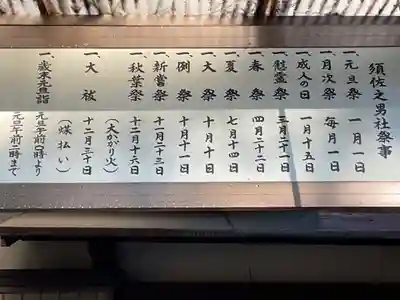 須佐之男社祭事
一、元旦祭 一月一日
一、月次祭 毎月一日
一、成人の日 一月十五日
一、慰霊祭 三月二十一日
一、春祭 四月二十二日
一、夏祭 七月十四日
一、大祭 十月十日
一、例祭 十月十一日
一、新嘗祭 十一月二十三日
一、秋葉祭 十二月十六日
(大かがり火)
一、大祓 十二月三十日
(煤払い)
一、歳末元旦詣 元旦午前0時より
元旦午前二時まで